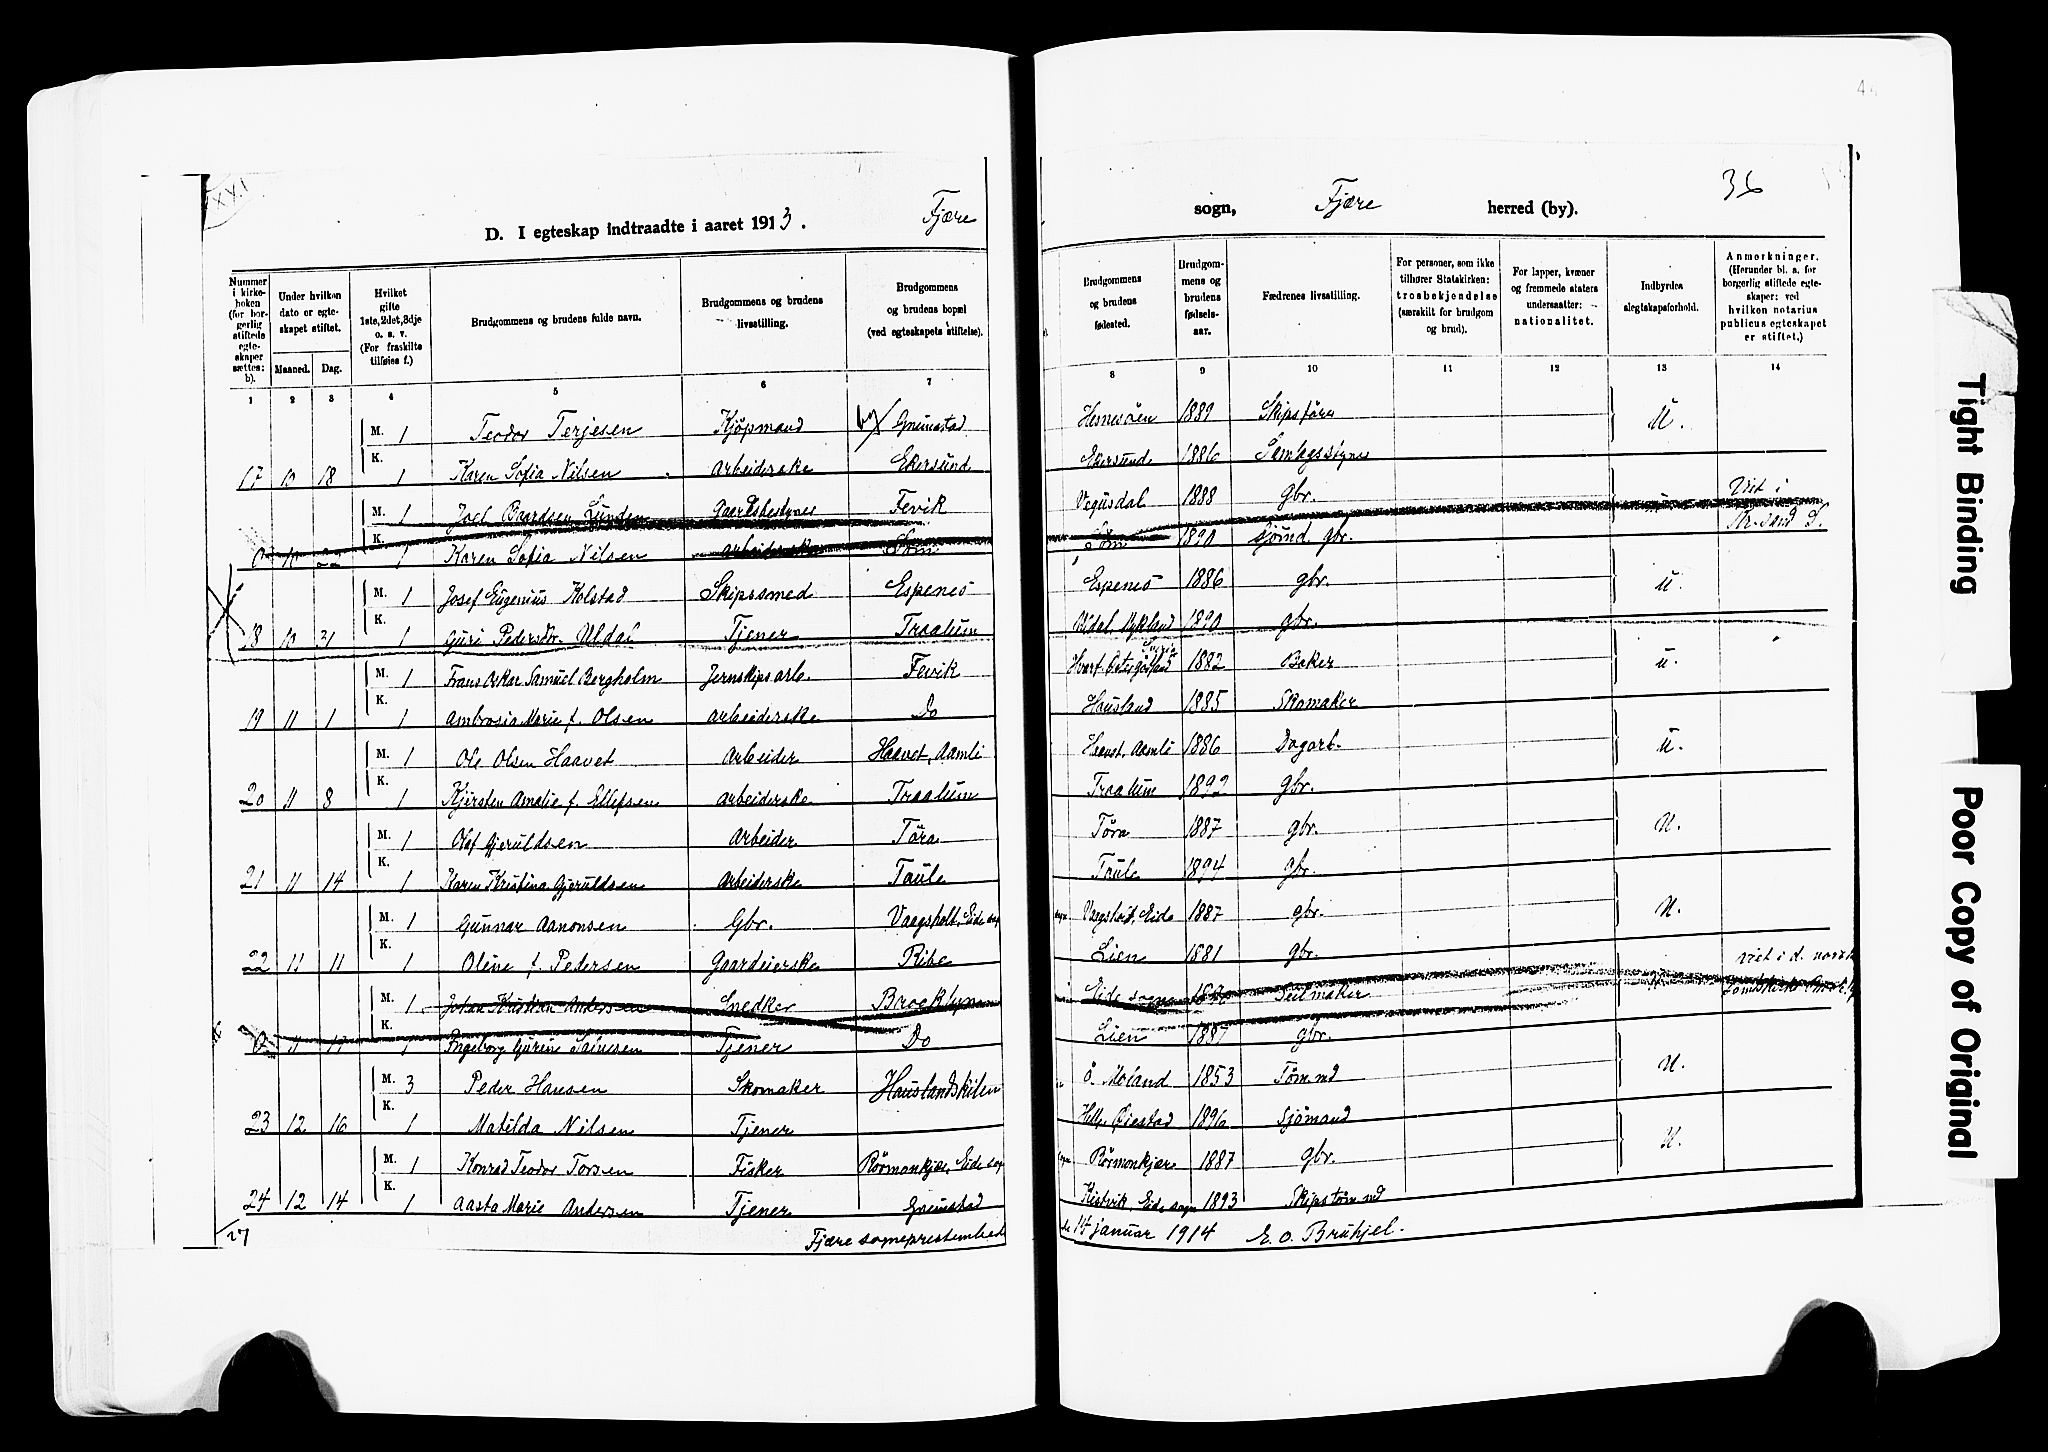 D. I egteskap indtraadte i aaret 1913. Fjære sogn, Fjære herred (by). 36
Nummer i kirkeboken (for borgerlig stiftede egteskaper sættes: b).
Under hvilken dato er egteskapet stiftet.
Maaned. Dag.
Hvilket gifte 1ste, 2det, 3dje o. s. v. (For fraskilte tilføies f.)
Brudgommens og brudens fulde navn.
Brudgommens og brudens livsstilling.
Brudgommens og brudens bopæl (ved egteskapets stiftelse).
Brudgommens og brudens fødested.
Brudgommens og brudens fødselsaar.
Fædrenes livsstilling.
For personer, som ikke tilhører Statskirken: trosbekjendelse (særskilt for brudgom og brud).
For lapper, kvæner og fremmede staters undersaatter: nationalitet.
Indbyrdes slegtskapsforhold.
Anmerkninger. (Herunder bl. a. for borgerlig stiftede egteskaper: ved hvilken notarius publicus egteskapet er stiftet.)
1 2 3 4 5 6 7 8 9 10 11 12 13 14
M. 1 Teodor Terjesen Kjöpmand Grimstad Hesnesöen 1889 Skipsförer U.
17 10 18 K. 1 Karen Sofia Nilsen Arbeiderske Ekersund Ekersund 1886
M. 1 Joel Baardsen Lunden Gaardsbestyrer Fevik Vegusdal 1888 gbr. Viet i
10 22 K. 1 Karen Sofia Nilsen Arbeiderske Töm Töm 1890 Sjömd. gbr. Kr.sand S.
M. 1 Josef Eugenius Kolstad Skipssmed Espenes Espenes 1886 gbr. U.
18 10 31 K. 1 Guri Pedersdtr. Uldal Tjener Traalum Uldal, Vykland 1890 gbr.
M. 1 Frans Oskar Samuel Bergholm Jernskipsarb. Fevik 1882 Baker U.
19 11 1 K. 1 Ambrosia Marie f. Olsen Arbeiderske Do Hausland 1885 Skomaker
M. 1 Ole Olsen Haavet Arbeider Haavet, Aamli Haavet, Aamli 1886 Dagarb. U.
20 11 8 K. 1 Kjersten Amalie f. Ellefsen Arbeiderske Traalum Traalum 1892 gbr.
M. 1 Olaf Gjeruldsen Arbeider Töra Töra 1887 gbr. U.
21 11 14 K. 1 Karen Kristina Gjeruldsen Arbeiderske Taule Taule 1894 gbr.
M. 1 Gunnar Aanonsen Gbr. Vaagsholt, Eide sogn Vaagsholt, Eide 1887 gbr. U.
22 11 11 K. 1 Oline f. Pedersen Gaardeierske Ribe Lien 1881 gbr.
M. 1 Johan Kristian Andersen Snedker Brooklyn Eide sogn Seilmaker viet i d. norske
11 K. 1 Ingeborg Gurine Tjener Do Lien 1887 gbr.
M. 3 Peder Hansen Skomaker Hauslandskilen Ö. Moland 1853 Töm.md U.
23 12 16 K. 1 Matilda Nilsen Tjener Øiestad 1896 Sjömand
M. 1 Konrad Teodor Torsen Fisker Rörmonkjær, Eide sogn Rörmonkjær 1887 gbr. U.
24 12 14 K. 1 Aasta Marie Andersen Tjener Grimstad Kistvik, Eide sogn 1893 Skipstöm.md
27
Fjære sogneprestembede 14 januar 1914 E. O. Bruhjel.
Tight Binding
Poor Copy of Original